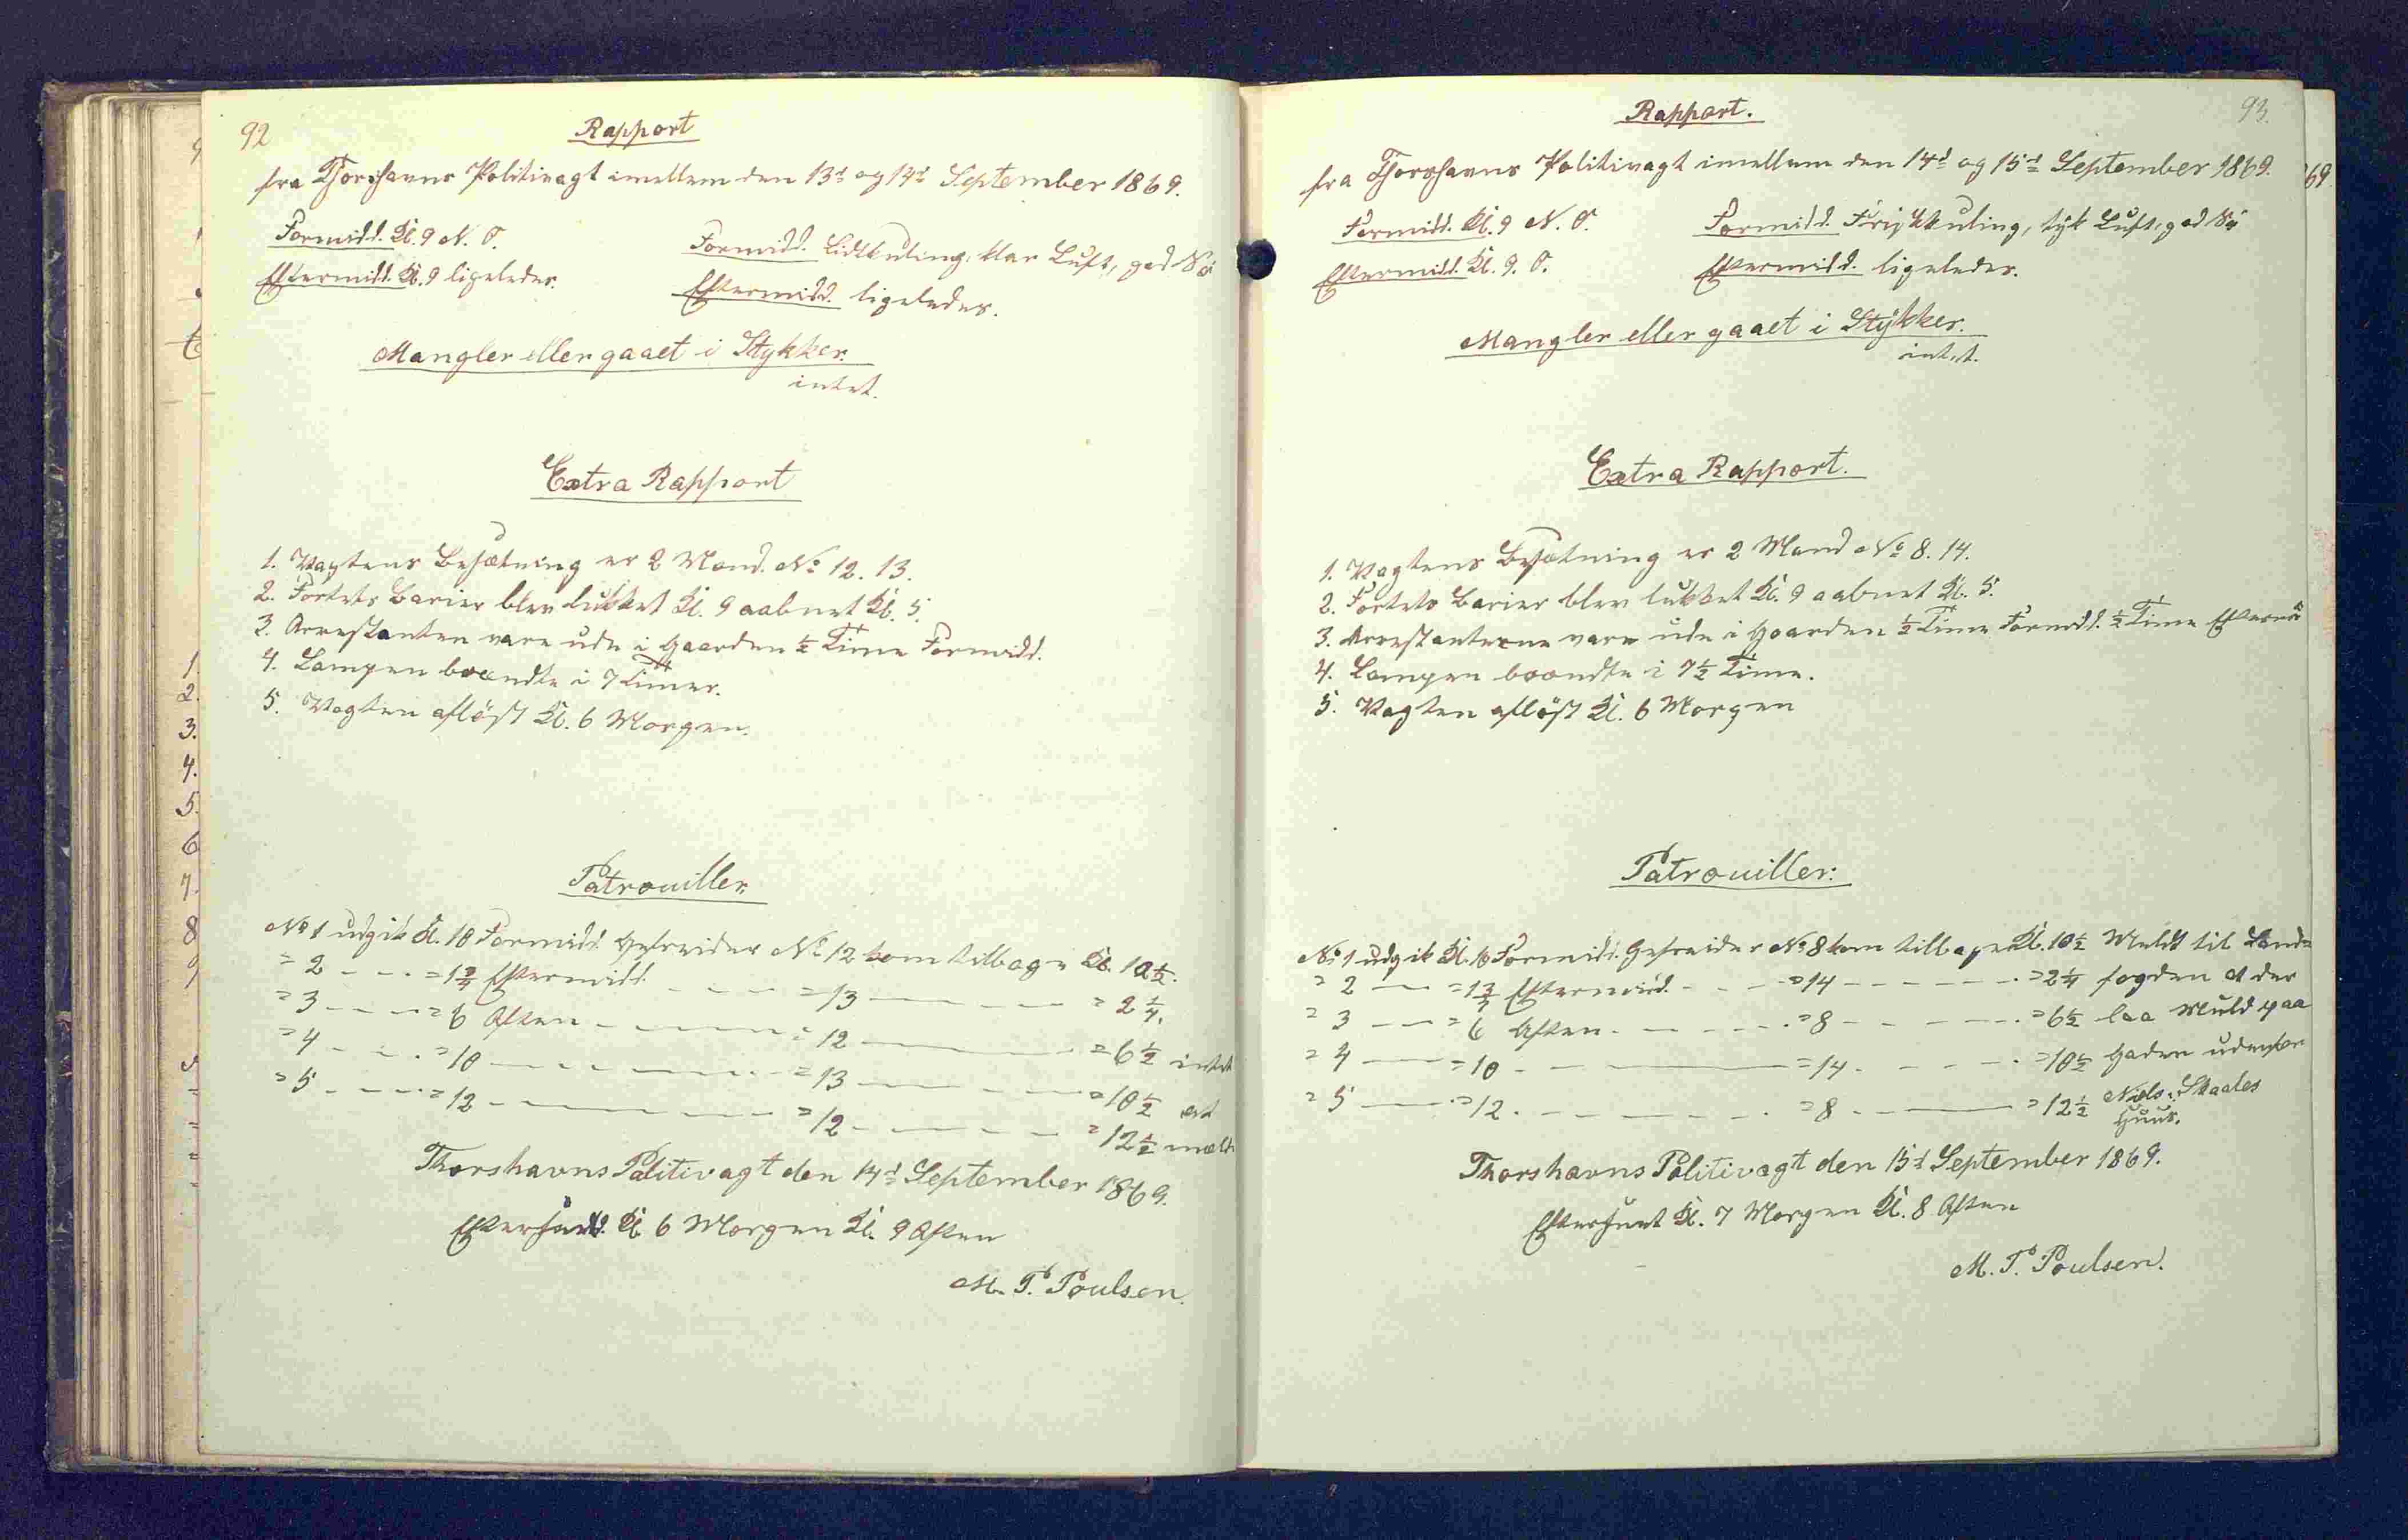 92
Rapport
fra Thorshavns Politivagt imellem den 13d og 14d September 1869.
Formidd. Kl. 9 N. O.
Eftermidd. Kl. 9 ligeledes.
Formidd. Lidt kuling, klar Luft, god Sø
Eftermidd. ligeledes.
Mangler eller gaaet i Stykker.
intet.
Extra Rapport
1. Vagtens Besætning er 2 Mand. No 12. 13.
2. Fortets Barier blev lukket Kl. 9 aabnet Kl. 5.
3. Arrestanten vare ude i Gaarden ½ Time Formidd.
4. Lampen brændte i 7 Timer.
5. Vagten afløst Kl. 6 Morgen.
Patrouiller.
No 1 udgik Kl. 10 Formidd. Gefreider No 12 kom tilbage Kl. 10½.
= 2 - - - = 1¾ Eftermidd. - - - = 13 - - - = 2¼.
= 3 - - - = 6 Aften - - - = 12 - - - = 6½ intet
= 4 - - - = 10 - - - = 13 - - - = 10½ at
= 5 - - - = 12 - - - = 12 - - - = 12½ melde
Thorshavns Politivagt den 14d September 1869.
Kl. 6 Morgen Kl. 9 Aften
M. P. Poulsen.
93.
Rapport.
fra Thorshavns Politivagt imellem den 14d og 15d September 1869.
Formidd. Kl. 9 N. O.
Eftermidd. Kl. 9. O.
Formidd. Frisk kuling, tyk Luft, god Sø
Eftermidd. ligeledes.
Mangler eller gaaet i Stykker.
intet.
Extra Rapport.
1. Vagtens Besætning er 2 Mand No 8. 14.
2. Fortets Barier blev lukket Kl. 9 aabnet Kl. 5.
3. Arrestanterne vare ude i Gaarden ½ Time Formidd. ½ Time Efterm
4. Lampen brændte i 7½ Time.
5. Vagten afløst Kl. 6 Morgen
Patrouiller:
No 1 udgik Kl. 10 Formidd. Gefreider No 8 kom tilbage Kl. 10½ Meldt til Land=
= 2 - - - = 1¾ Eftermidd. - - - = 14 - - - = 2¼ fogden at der
= 3 - - - = 6 Aften - - - = 8 - - - = 6½ laa Muld paa
= 4 - - - = 10 - - - = 14 - - - = 10½ Gaden udenfor
= 5 - - - = 12 - - - = 8 - - - = 12½ Nols. Skaales
Huus.
Thorshavns Politivagt den 15d September 1869.
Kl. 7 Morgen Kl. 8 Aften
M. P. Poulsen.
69
1.
2.
3.
4.
5.
6
7.
8
9